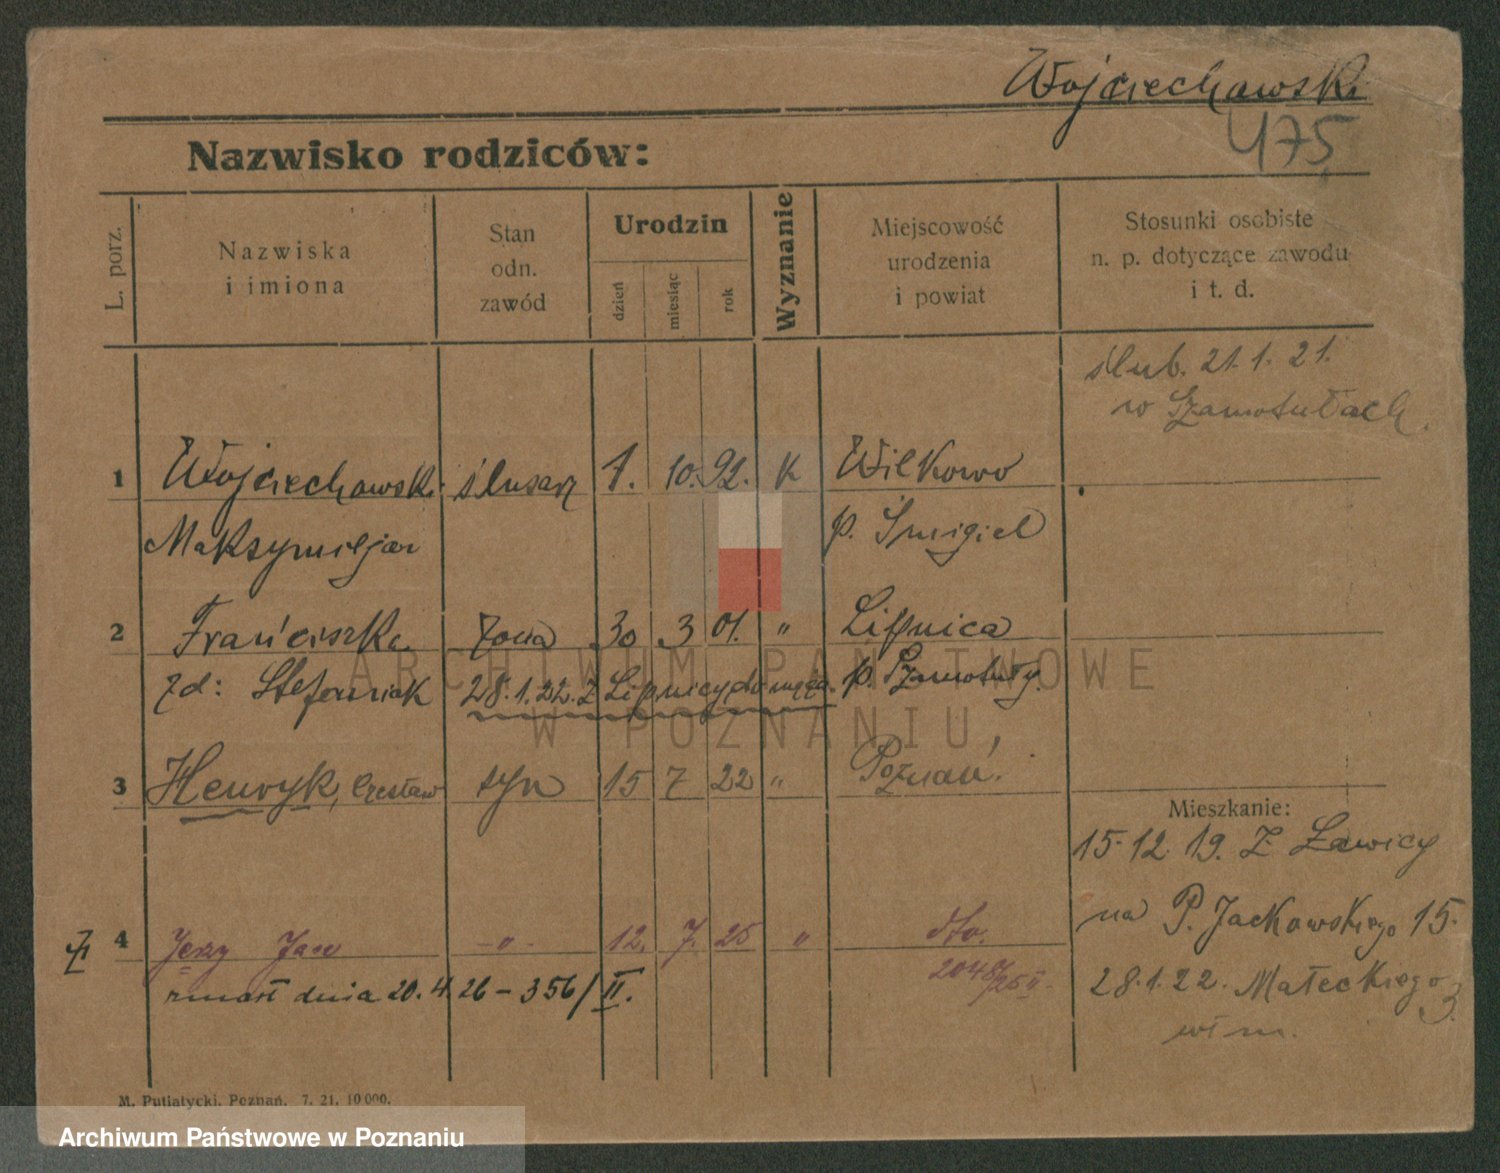 Wojciechowski
475
Nazwisko rodziców:
L. porz.
Nazwiska i imiona
Stan odn. zawód
Urodzin
dzień
miesiąc
rok
Wyznanie
Miejscowość urodzenia i powiat
Stosunki osobiste n. p. dotyczące zawodu i t. d.
ślub. 21.1.21.
w Szamotułach.
1 Wojciechowski ślusarz 1. 10. 92. K Wilkowo
Maksymiljan p. Śmigiel
2 Franciszka żona 30 3 01. " Lipnica
zd: Stefaniak 28.1.22. z Lipnicy do męża. p. Szamotuły.
3 Henryk, Czesław syn 15 7 22 " Poznań.
Mieszkanie:
15.12.19. z Ławicy
na P. Jackowskiego 15.
4 Jerzy Jan - " - 12. 7. 25 " dto.
zmarł dnia 20.4.26 - 356/II.
28.1.22. Małeckiego 3.
M. Putiatycki, Poznań. 7. 21. 10 000.
ARCHIWUM PAŃSTWOWE
W POZNANIU
Archiwum Państwowe w Poznaniu